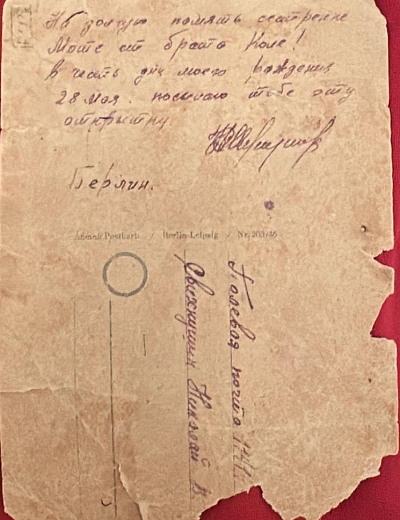 На долгую память сестрёнке
Моте от брата Коле!
В честь дня моего рождения
28 мая. посылаю тебе эту
открытку
Берлин.
Amnok Postkarte / Berlin-Leipzig / Nr. 203/46
Полевая почта
Николай